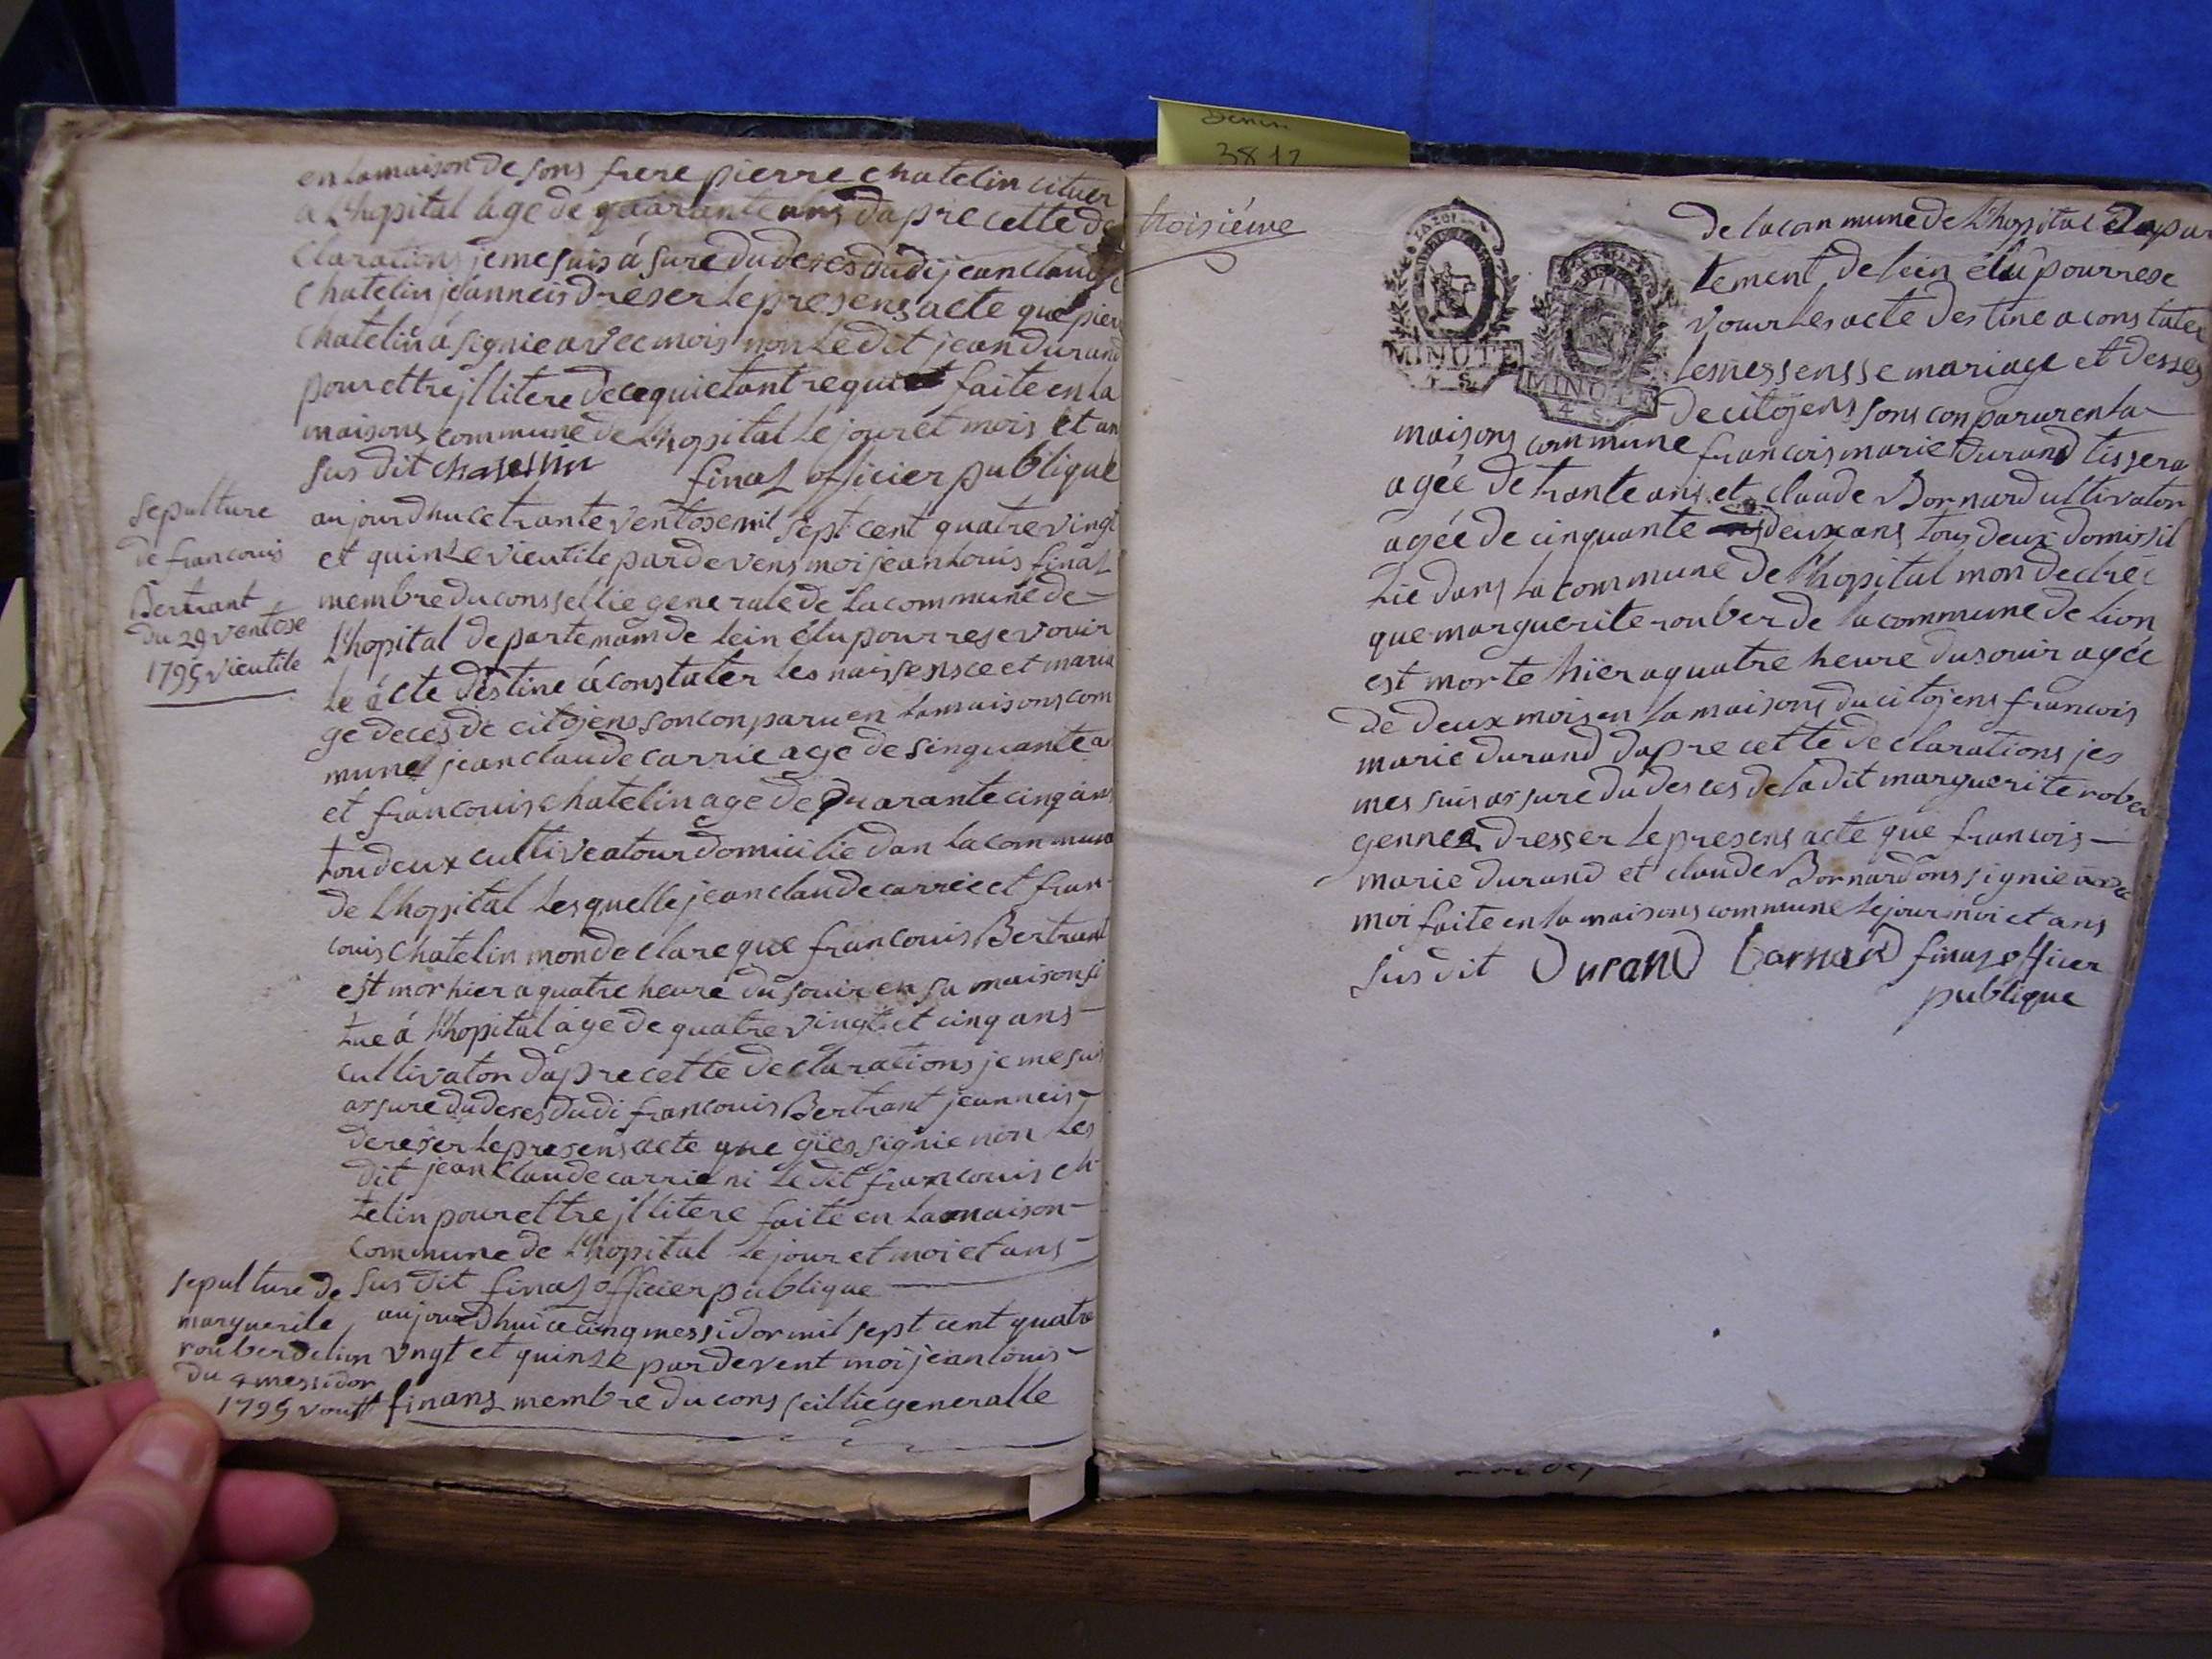 en lamaison de sons frere pierre chatelin situer
a L'hopital age de quarante ans dapre cette de
Claration jemesuis ásuré dudeses dudi jean claude
Chatelin jéanneis dréser lepresens acte que pierre
Chatelin á signie avec mois non Ledit jean durand
pour ettre jllitere de ce quietant requi faite en la
maisons commune de L'hopital le jour et mois et an
sus dit chatellin finaz officier publique
Sepulture
de francouis
Bertrant
du 29 ventose
1795 vieutile
aujourdhuice trante ventose mil sept cent quatre vingt
et quinze vieutile pardevens moi jean Louis finaz
membre du conssellie generale de La commune de
L'hopital departemam de Lein élu pour resevouir
Le ácte destine á constater Les naissensce et maria
ge deces de citojens son conparu en Lamaisons com
mune jean claude carrie age de sinquante a
et francouis chatelin age de quarante cinq ans
toudeux cultiveatour domicilie dan La commune
de L'hopital Lesquelle jean claude carrie et fran
couis Chatelin mon declare que francouis Bertrant
est mor hier a quatre heure du souir en sa maison si
tue á L'hopital age de quatre vingt et cinq ans
cultivaton dapre cette declarations je me sui
assure du deses dudi francouis Bertrant jeanneis
dereser Le presens acte que gies signie non Les
dit jean Claude carrie ni Le dit francouis ch
telin pour ettre jllitere faite en La maison
commune de L'hopital Le jour et moi et ans
sus dit finaz officier publique
sepulture de
marguerite
rouber delion
du 4 messidor
1795 voust
aujourdhui ce cinq messidor mil sept cent quatre
vngt et quinze par devent moi jean louis
finans membre du cons seillie generalle
Denin
3812
troisiéme
MINUTE
MINUTE
4 S.
de la commune de L'hopital depar
tement de Lein élu pour rese
vouir Les acte destine a constater
Les nessensse mariage et desses
de citojens sons conparu en La
maisons commune francois marie durand tissera
agée de trante ans et claude Bornard ultivaton
agée de cinquante deux ans tous deux domissil
Lie dans La commune de L'hopital mon declréé
que marguerite rouber de la commune de Lion
est morte hier a quatre heure du souir agée
de deux mois en La maisons du citojens francois
marie durand dapre cette declarations jes
mes suis assure du desces de la dit marguerite rober
gennes dresser Le presens acte que francois
marie durand et claude Bornard ons signie avec
moi faite en La maisons commune Le jour moi et ans
sus dit Durand bornard finaz officier
publique